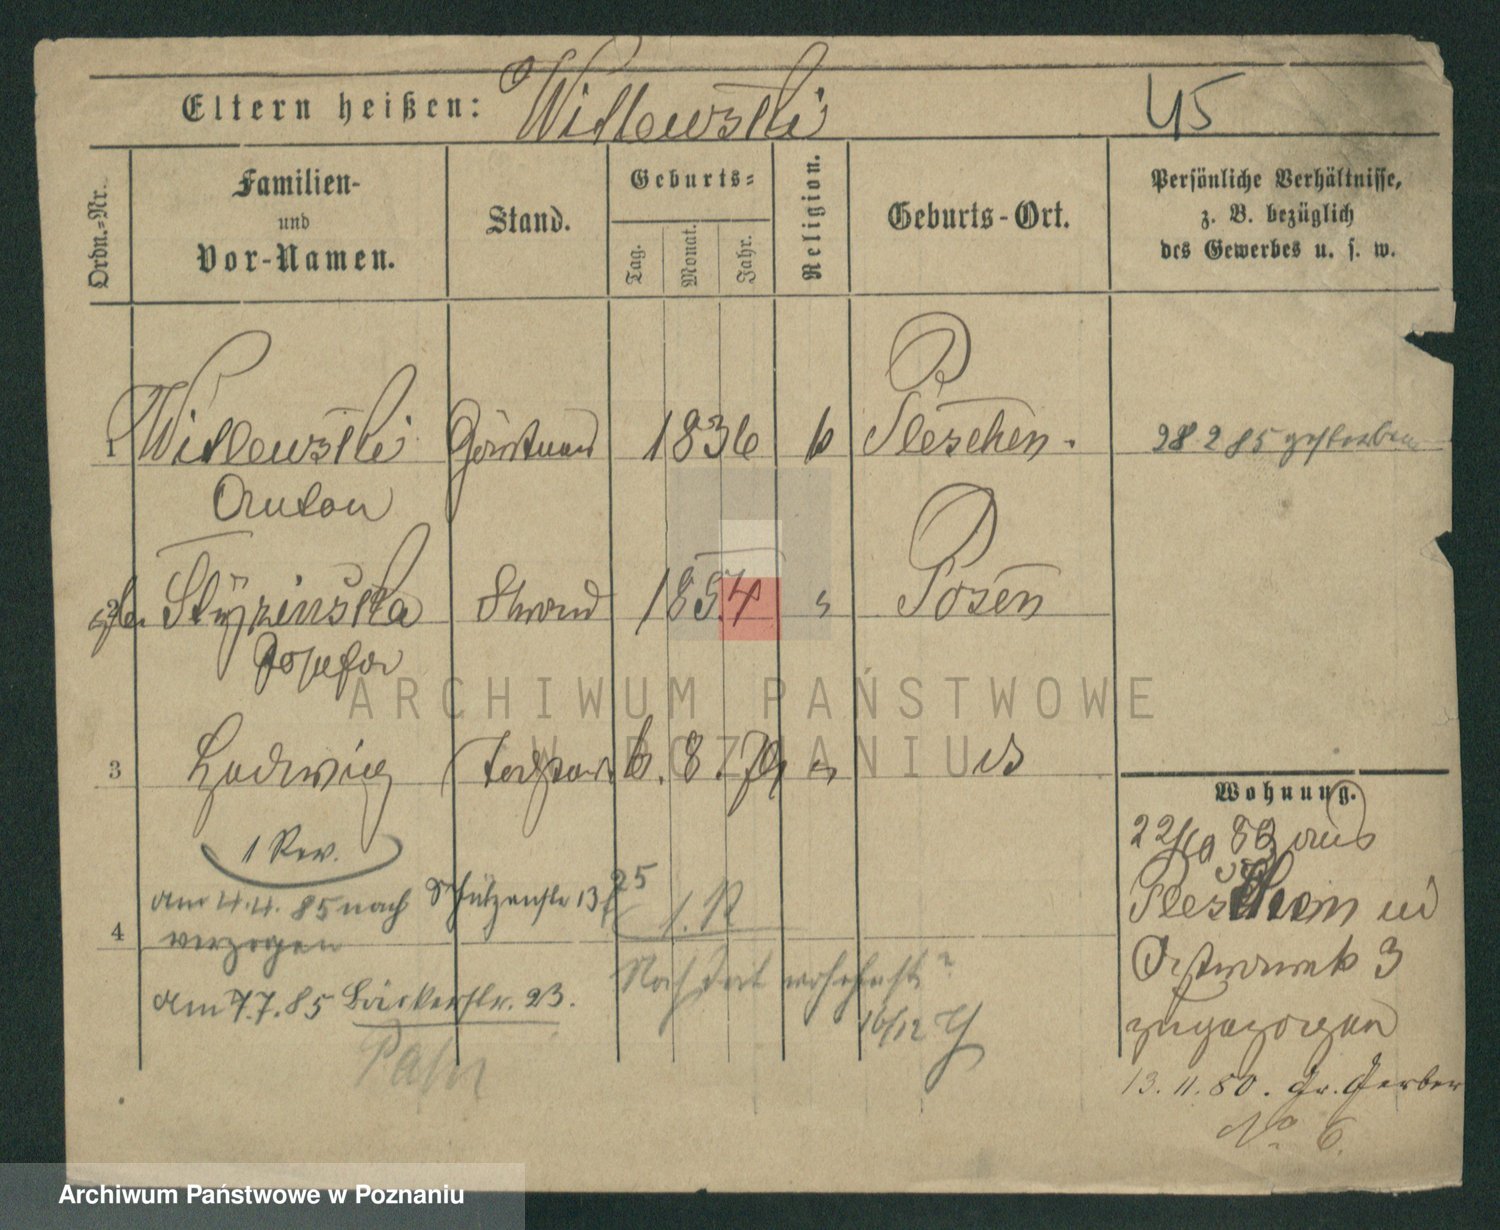 Eltern heißen: Widlewski 45
Ordn.-Nr.
Familien-
und
Vor-Namen.
Stand.
Geburts-
Tag.
Monat.
Jahr.
Religion.
Geburts-Ort.
Persönliche Verhältnisse,
z. B. bezüglich
des Gewerbes u. s. w.
1 Widlewski 1836 k Pleschen. 28 2 85 gestorben
Anton
2 1854 Posen
Josefa
3 Ludwig 6. 8. 79
1 Rev.
am 4.4. 85 nach Schützenstr 13
verzogen
4
1. R
am 7.7.85 Bäckerstr. 23.
16/12
Wohnung.
22/10 83 aus
Pleschen
Ostrowek 3
zugezogen
13. 11. 80. Gr. Gerber
No 6.
ARCHIWUM PAŃSTWOWE
W POZNANIU
Archiwum Państwowe w Poznaniu